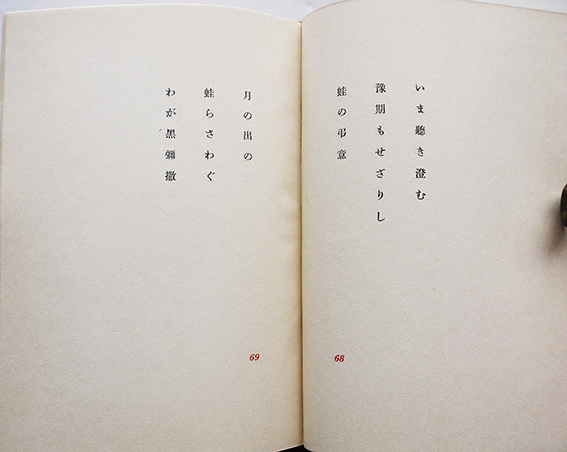 いま聴き澄む
豫期もせざりし
蛙の弔意
68
月の出の
蛙らさわぐ
わが黒彌撒
69